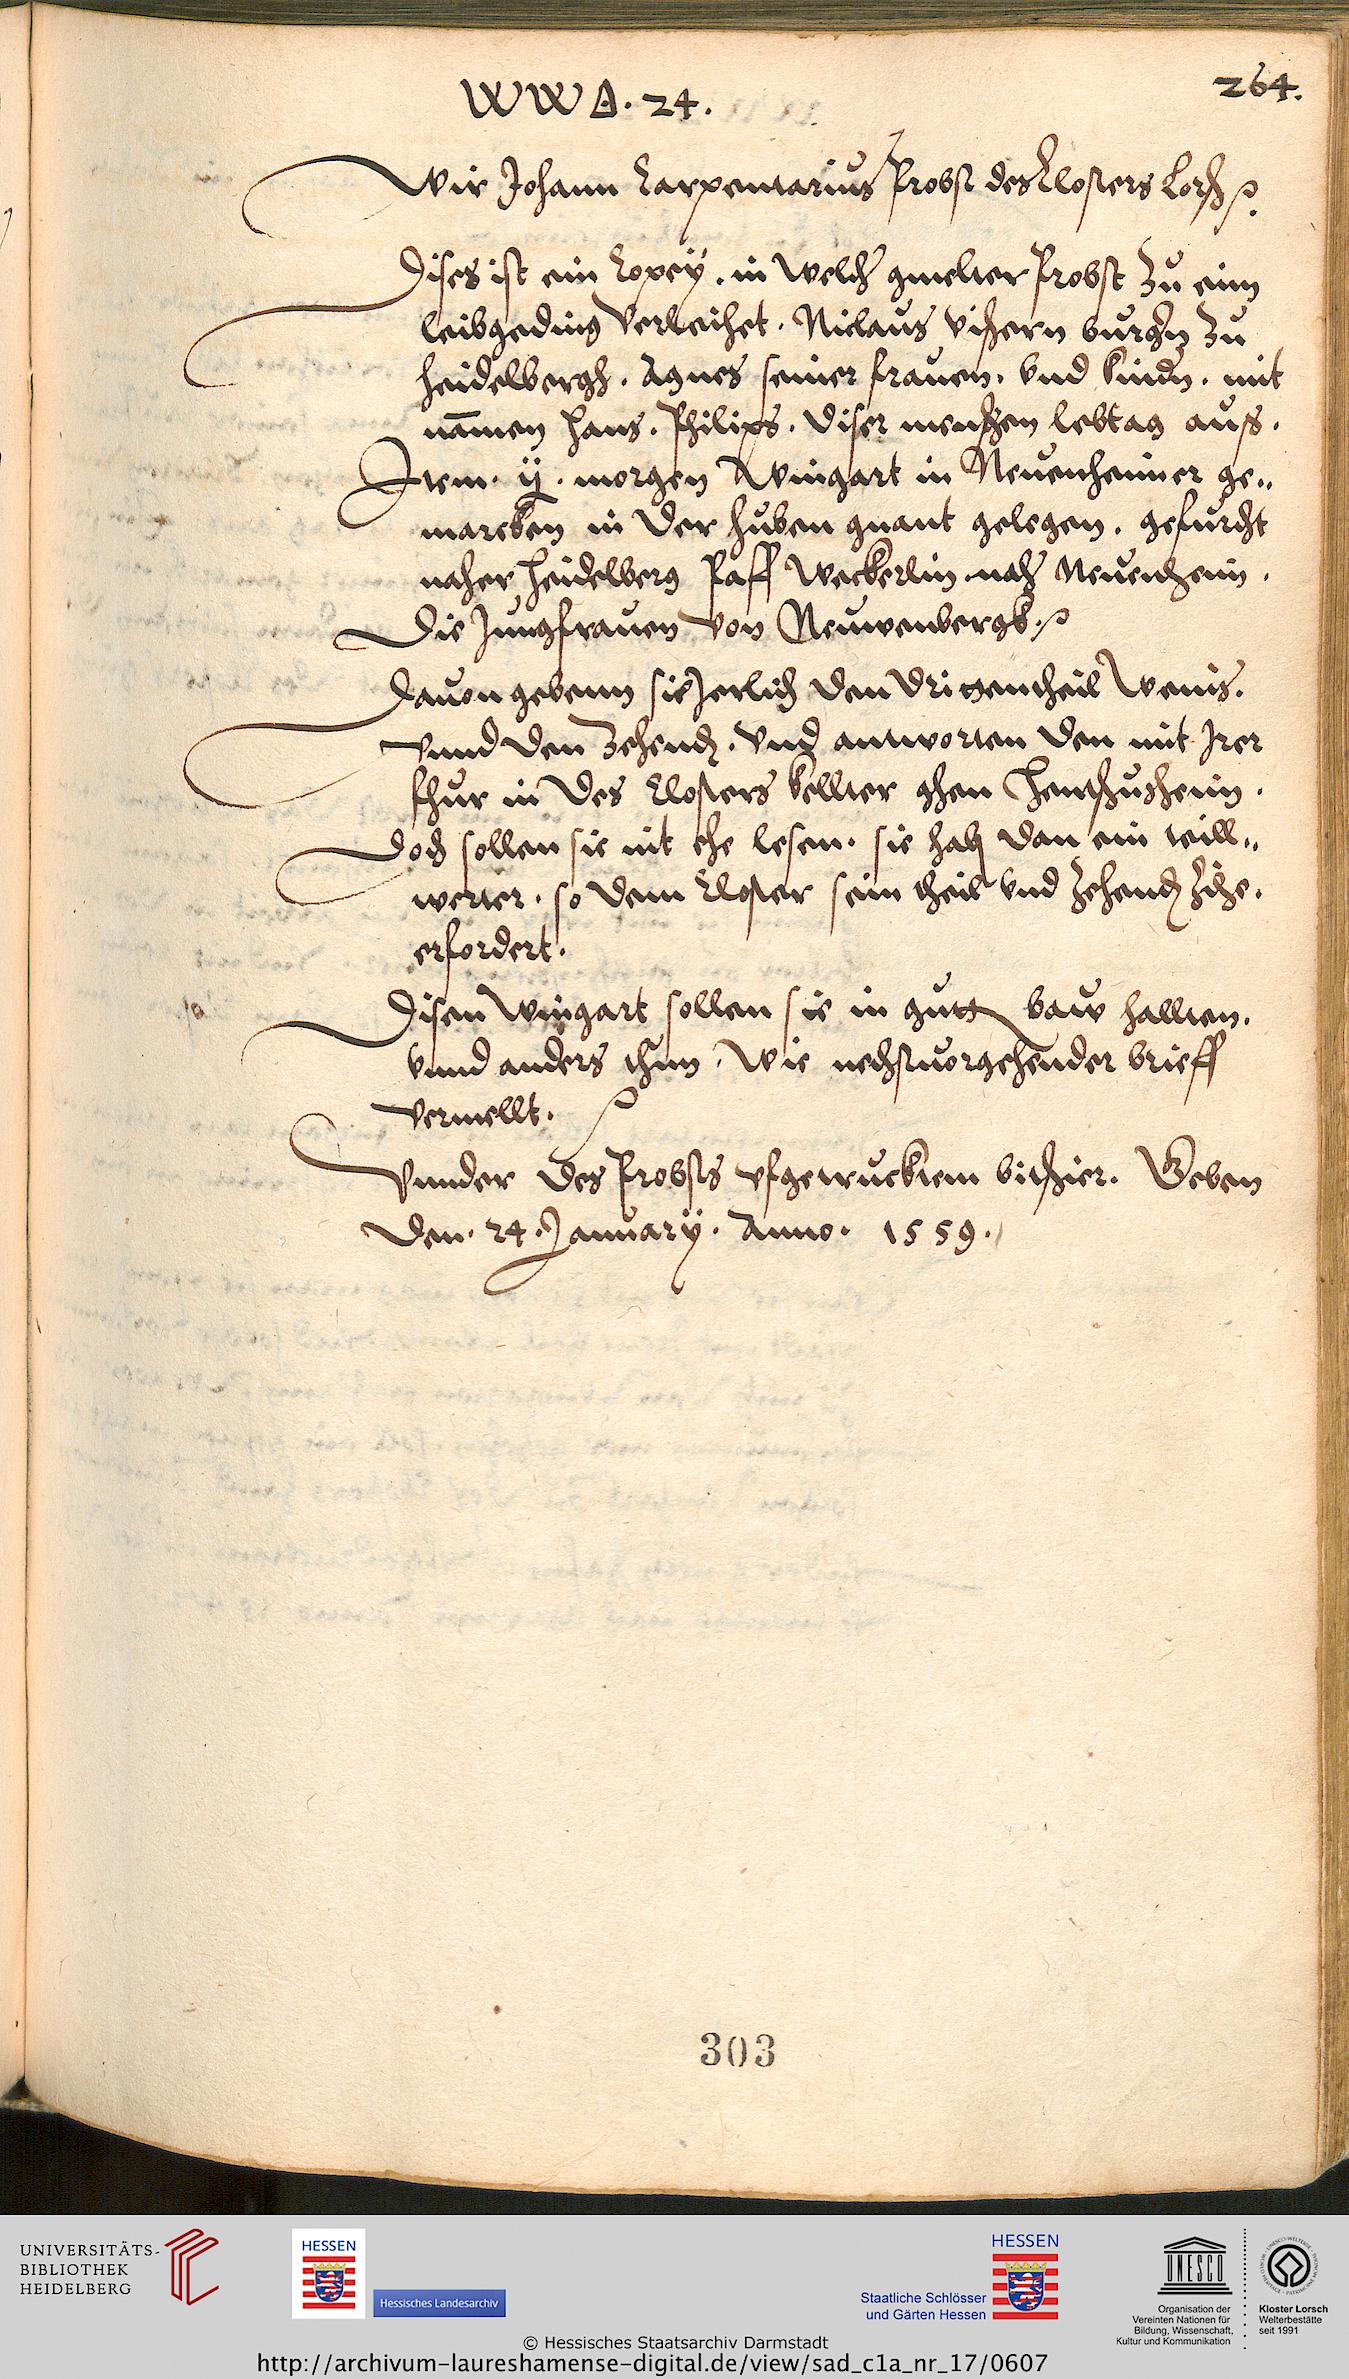 264.
WWΔ. 24.
Wir Johann Carpentarius Probst des Closters Lorsch
Dises ist ein Copey. in welcher gmelter Probst Zu eim
leibgeding verleihet. Niclaus burgern Zu
heidelbergh. Agnes seiner frauen. vnd kindern. mit
nammen Hans. Philips. diser menschen lebtag auss.
Item. ij. morgen Wingart in Neuenheimer ge„
marcken in der huben quant gelegen. gefurcht
naher Heidelberg Pfaff Weckerlin. naher Neuenheim.
Die Jungfrauen von Neuwenbergk.
Dauon gebenn sie Jerlich den dritgentheil Weins.
vnnd den Zehend. vnd antworten den mit Irer
fhur in des Closters kellter ghen Hentschusheim.
Doch sollen sie nit ehe lesen. sie hab dan ein will„
werter. so dem Closter sein theil vnd Zehend
erfordert.
Disen Wingart sollen sie in gutt baw hallten.
vnnd anders thun. Wie nechstuorgehender brieff
vermellt.
Vnnder des Probsts vfgetrucktem bitschier. Geben
den. 24. January. Anno. 1559.
303
UNIVERSITÄTS-
BIBLIOTHEK
HEIDELBERG
HESSEN
Hessisches Landesarchiv
HESSEN
Staatliche Schlösser
und Gärten Hessen
UNESCO
Organisation der
Vereinten Nationen für
Bildung, Wissenschaft,
Kultur und Kommunikation
Kloster Lorsch
Welterbestätte
seit 1991
© Hessisches Staatsarchiv Darmstadt
http://archivum-laureshamense-digital.de/view/sad_c1a_nr_17/0607